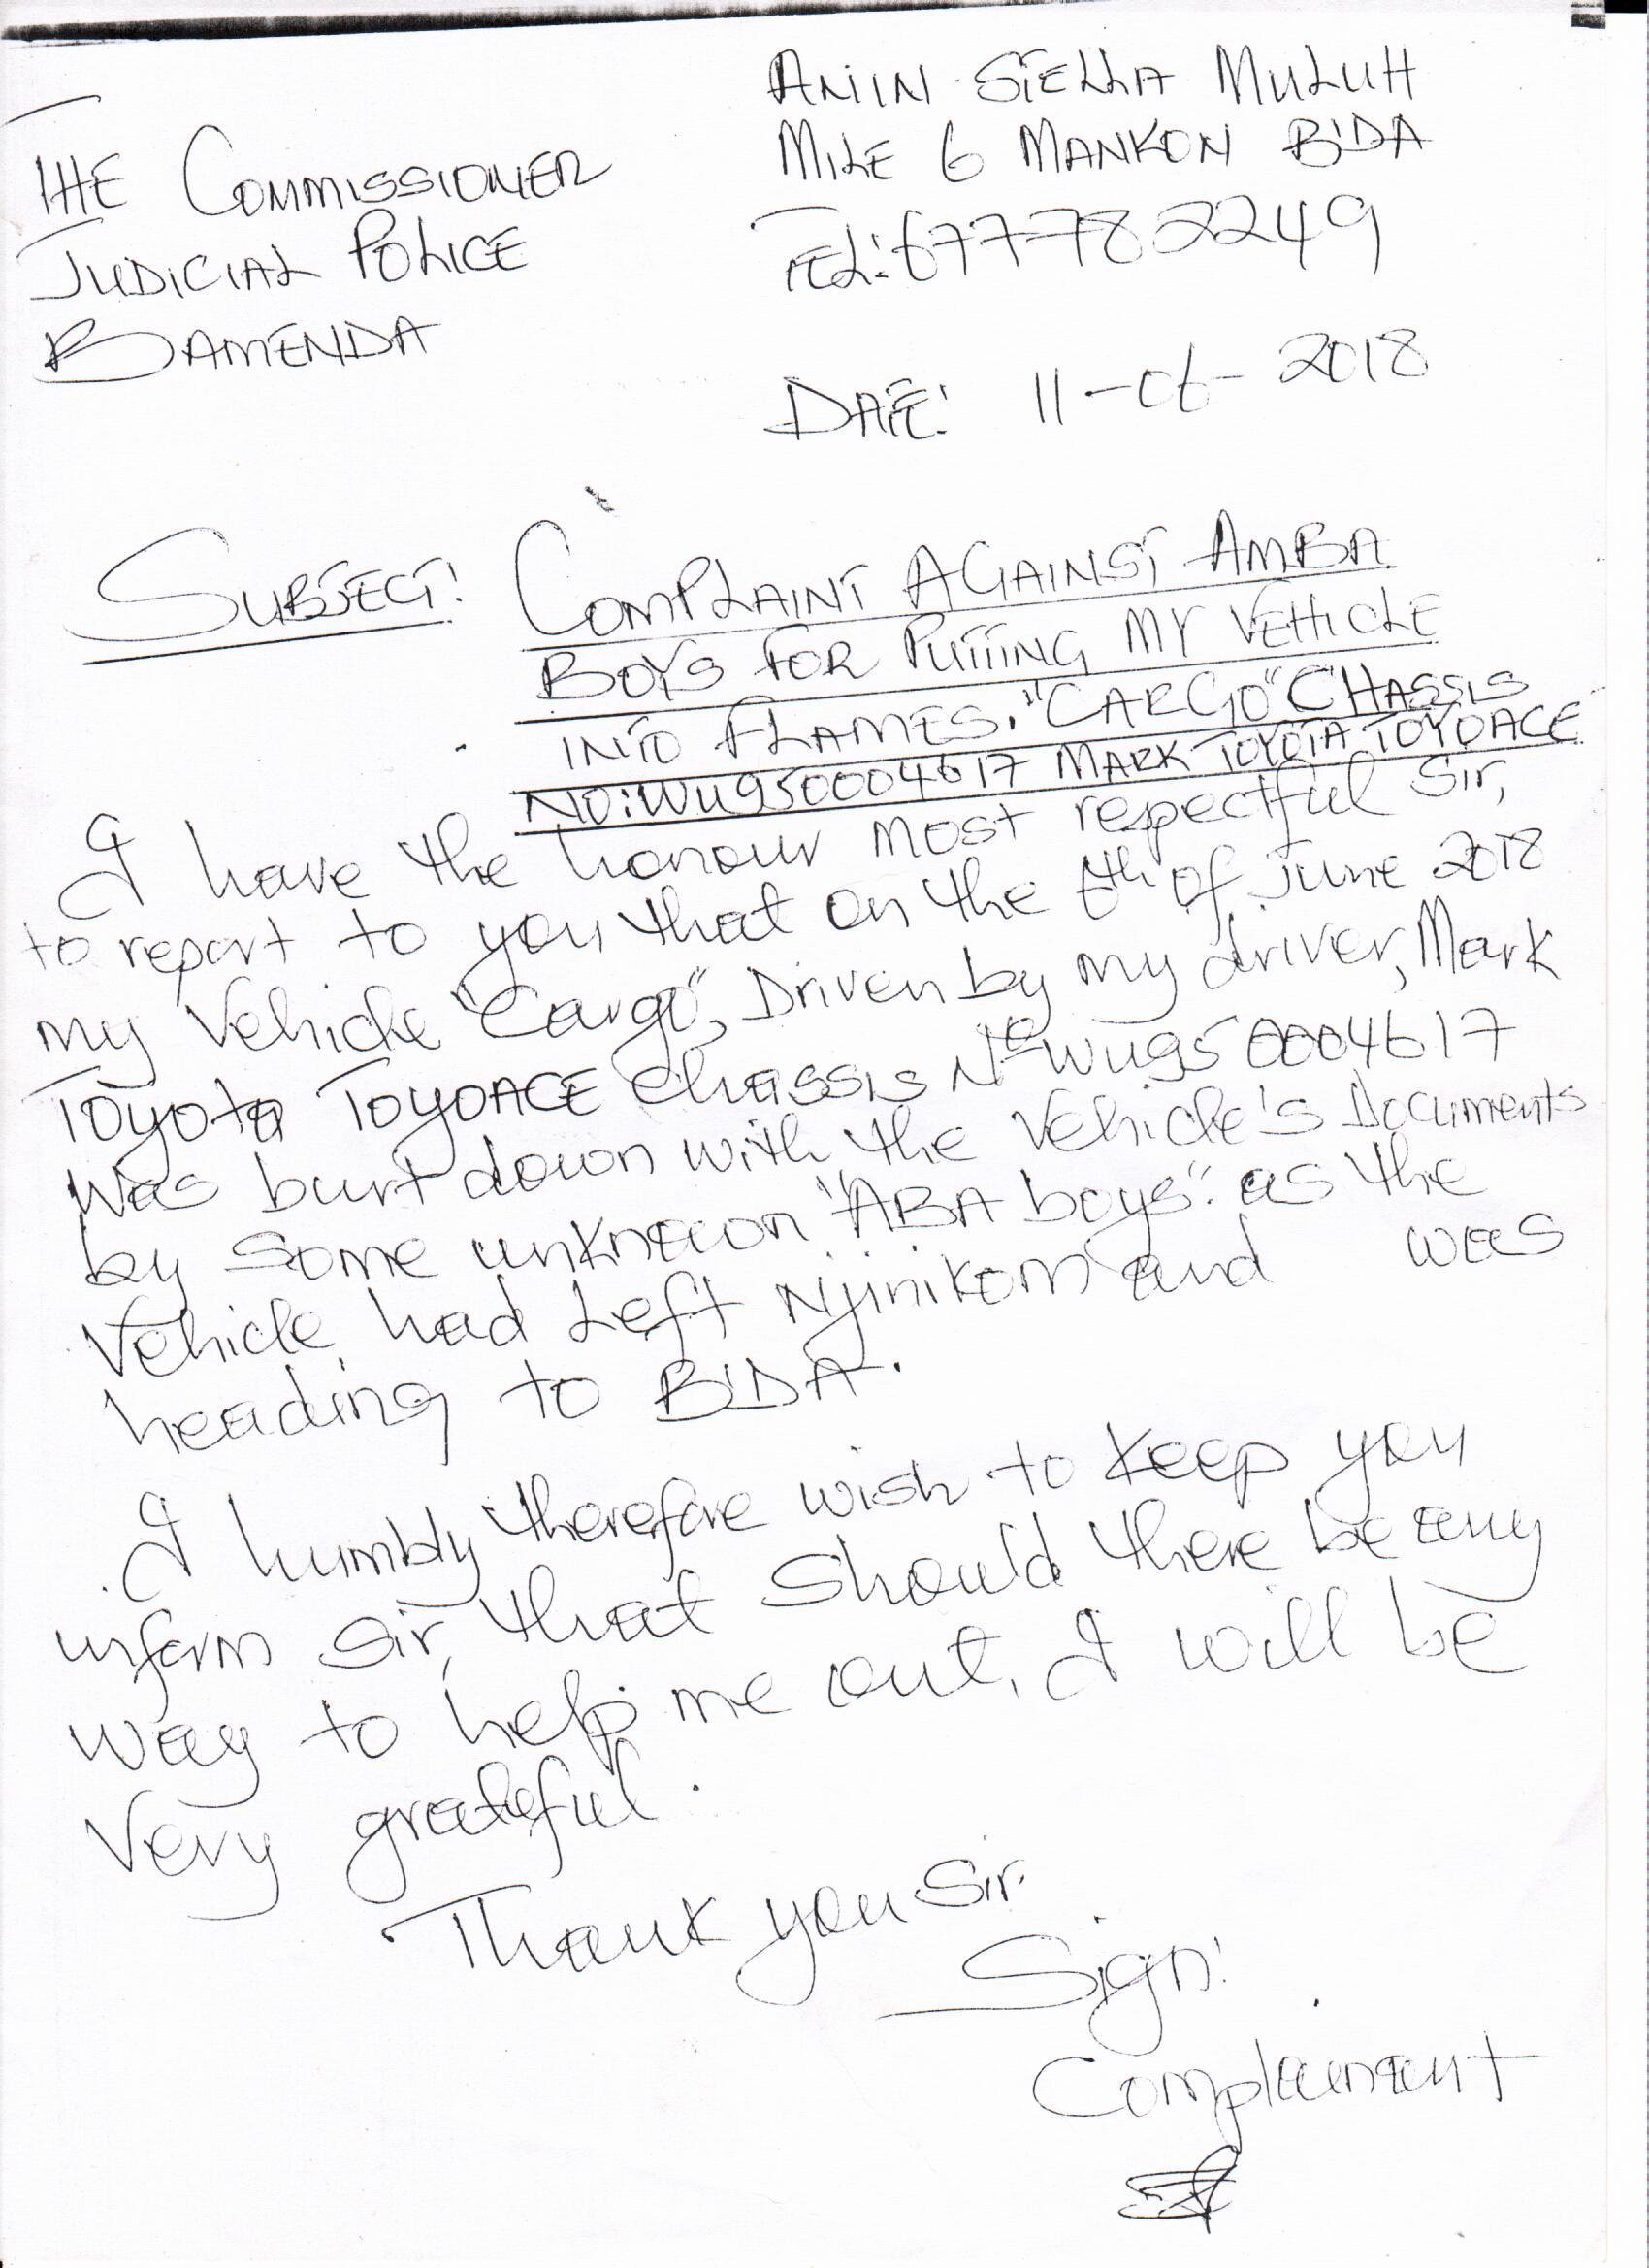 ANIIN STELLA MULUH
MILE 6 MANKON B'DA
TEL: 677782249
THE COMMISSIONER
JUDICIAL POLICE
BAMENDA
DATE: 11-06-2018
SUBJECT: COMPLAINT AGAINST AMBA
BOYS FOR PUTTING MY VEHICLE
INTO FLAMES. "CARGO" CHASSIS
NO: WU950004617 MARK TOYOTA TOYOACE
I have the honour most repectful Sir,
to report to you that on the 6th of June 2018
my Vehicle "Cargo", Driven by my driver, Mark
Toyota TOYOACE chassis No WU950004617
Was burt down with the Vehicle's Documents
by some unknown "ABA boys". as the
Vehicle had Left Njinikom and was
heading to B'DA.
I humbly therefore wish to keep you
inform Sir, that should there be any
way to help me out, I will be
Very grateful.
Thank you Sir.
Sign:
Complainant